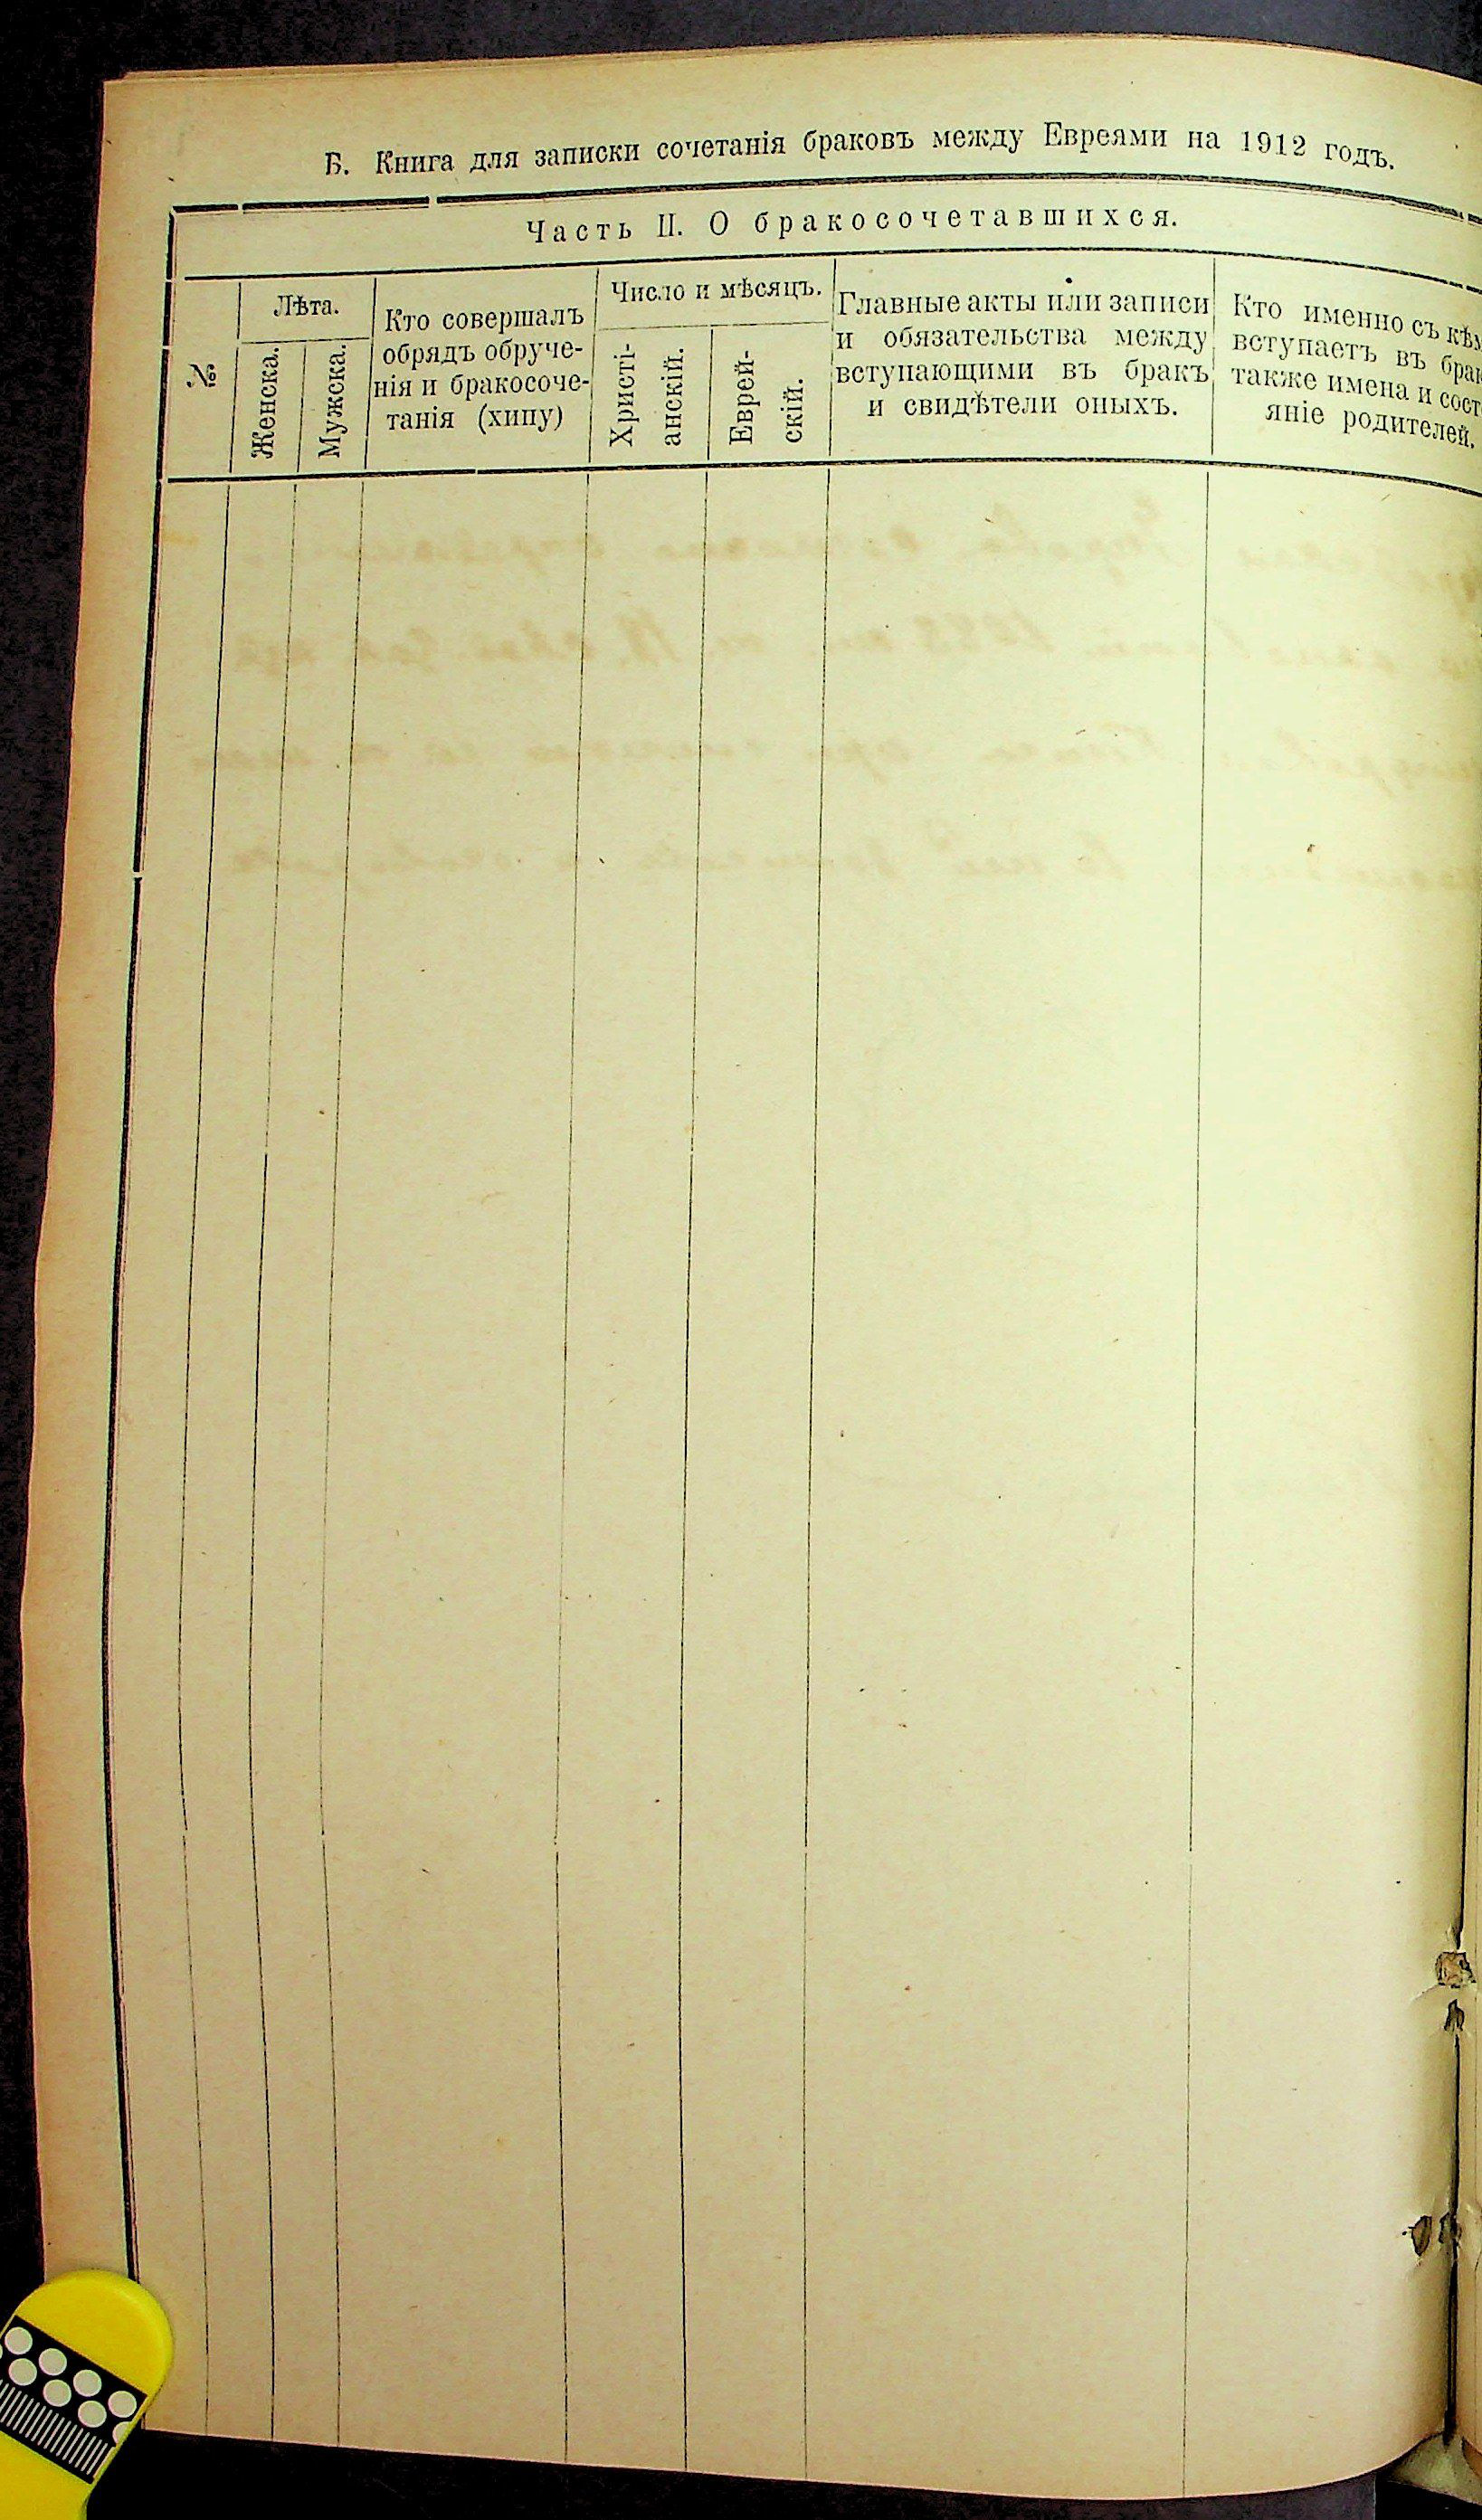 Б. Книга для записки сочетанія браковъ между Евреями на 1912 годъ.
Часть II. О бракосочетавшихся.
№
Лѣта.
Женска.
Мужска.
Кто совершалъ
обрядъ обруче-
нія и бракосоче-
танія (хипу)
Число и мѣсяцъ.
Христі-
анскій.
Еврей-
скій.
Главные акты или записи
и обязательства между
вступающими въ бракъ
и свидѣтели оныхъ.
Кто именно съ
вступаетъ въ
также имена и
яніе родителей.